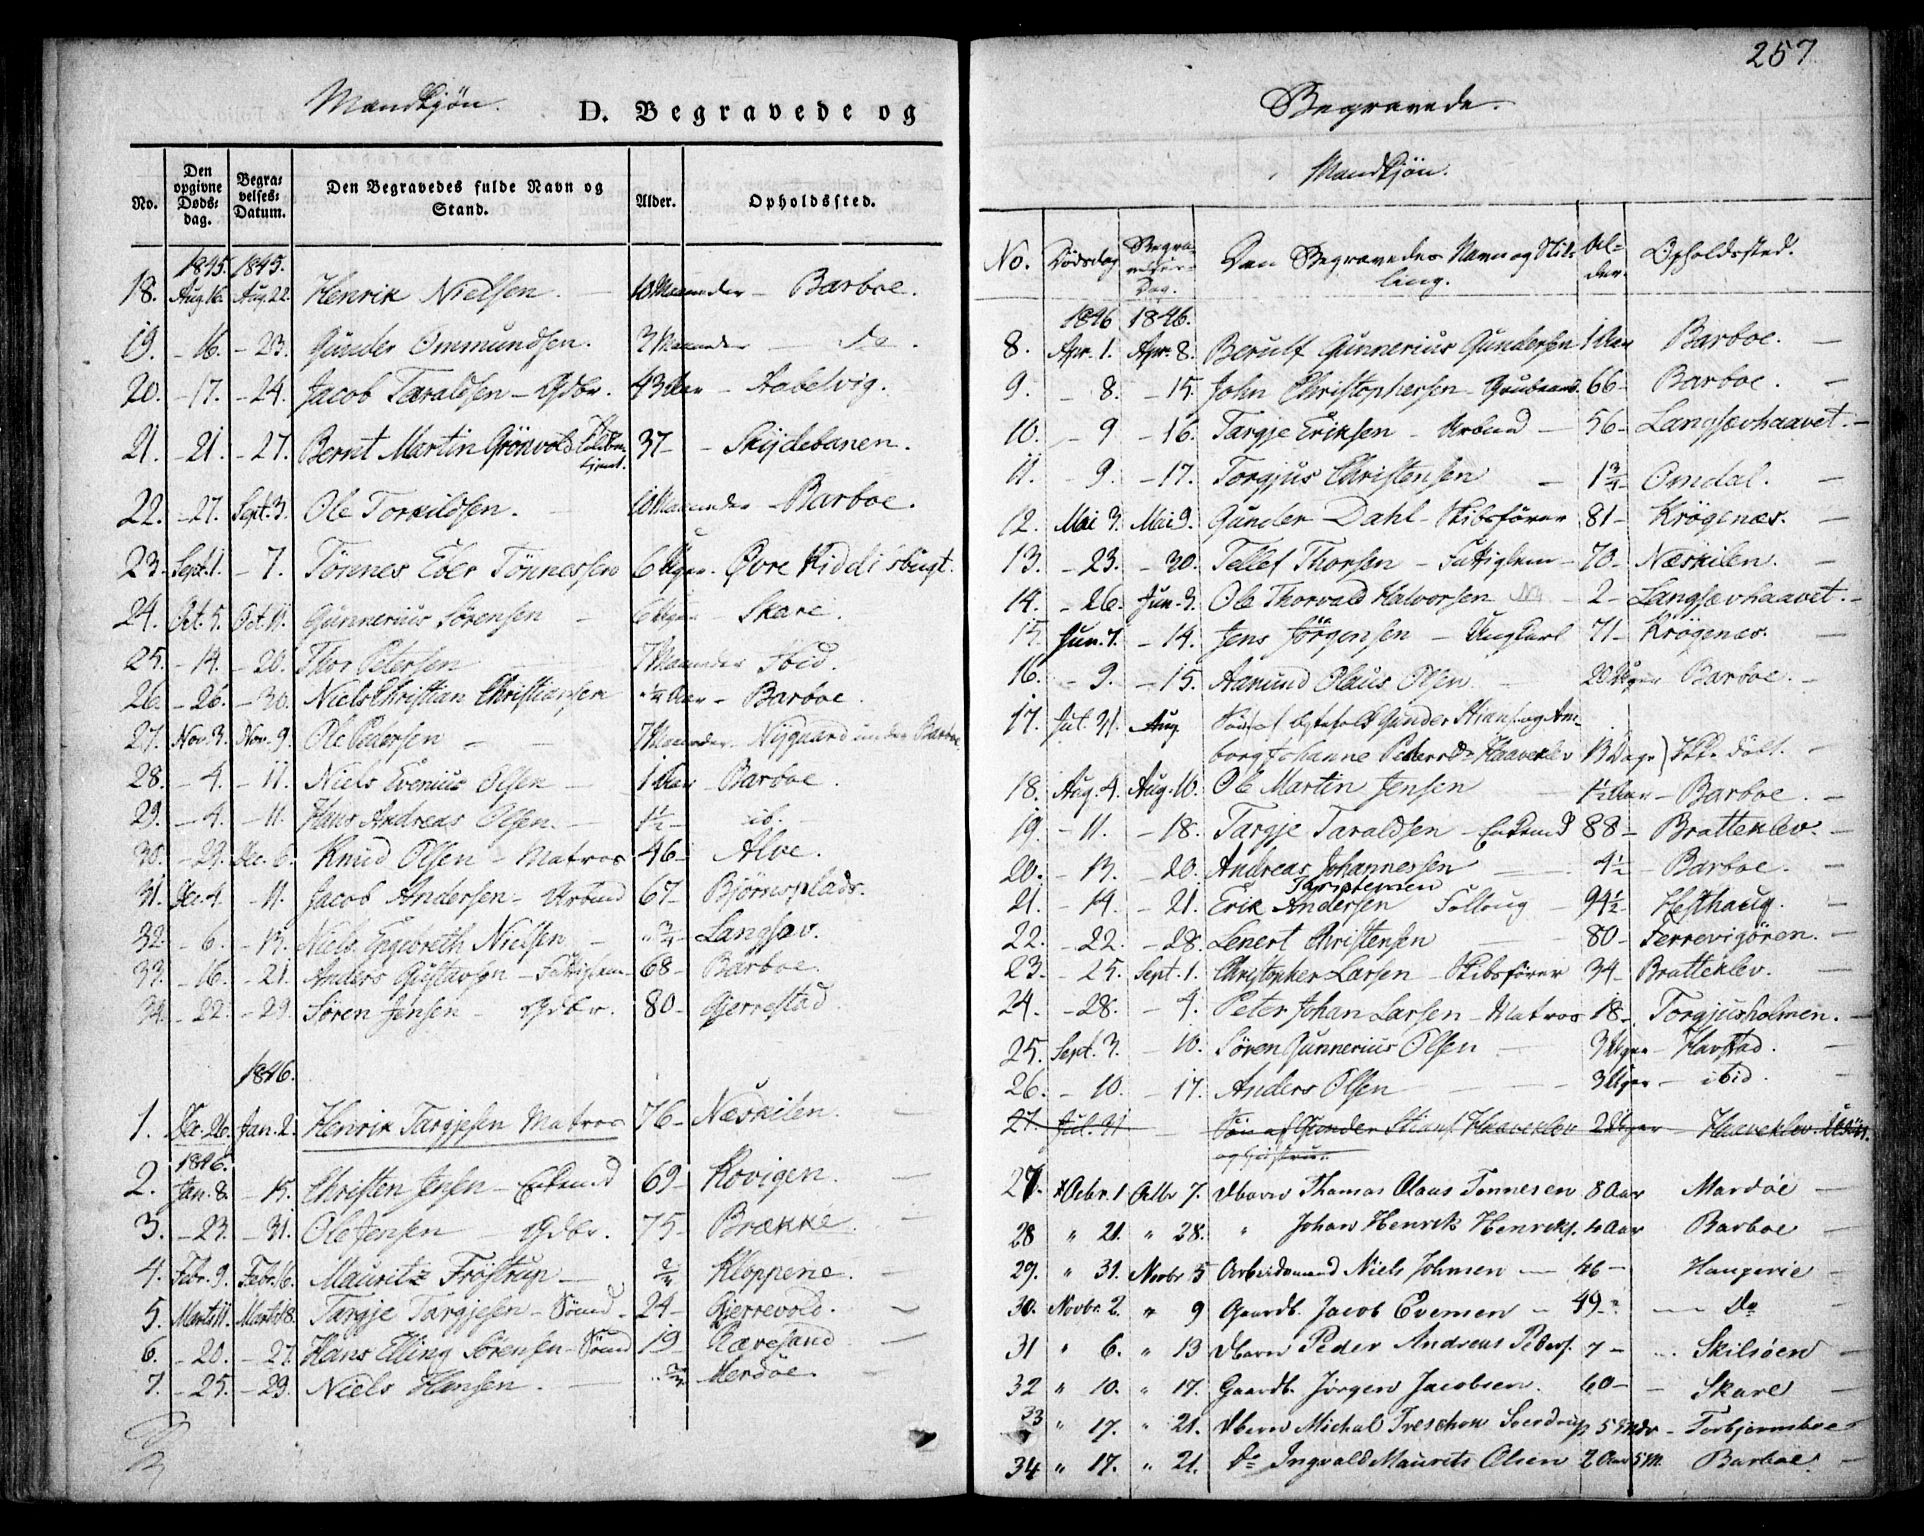 Mandkjøn.
D. Begravede og
No.
Den opgivne Døds-dag.
Begra-velses-Datum.
Den Begravedes fulde Navn og Stand.
Alder.
Opholdssted.
1845. 1845.
18. Aug. 16. Aug. 22. Henrik Nielsen. 10 Maaneder - Barboe.
19. - 16. - 23. Gunder Ommundsen. 3 Maaneder - do.
20. - 17. - 24. Jacob Taraldsen - Gdbr. 43 Aar - Aabelvig.
21. - 21. - 27. Bernt Martin Grönvold 37 - Skydebanen.
22. - 27. Sept. 3. Ole Torkildsen. 10 Maaneder - Barboe.
23. Sept. 1. - 7. Tönnes Eber Tönnessen 6 Uger. Øvre Kiddisbugt.
24. Oct. 5. Oct. 11. Gunnerius Sörensen - 6 Uger - Skare.
25. - 14. - 20. Thor Petersen 7 Maaneder Ibid.
26. - 26. - 30. Niels Christian Christiansen 1/4 Aar - Barboe.
27. Nov. 3. Nov. 9. Ole Petersen - - 7 Maaneder. Nygaard under Barboe
28. - 4. - 11. Niels Evenius Olsen - 1 Aar - Barboe.
29. - 4. - 11. Hans Andreas Olsen. - 1½ - ib. -
30. - 29. Dec. 6. Knud Olsen - Matros 46 - Alve.
31. Dec. 4. - 11. Jacob Andersen - Arbmd 67 - Björnsplads.
32. - 6. - 13. Niels Engebreth Nielsen - " ¾ - Langsæv.
33. - 16. - 21. Anders Gustavsen - Fattiglem - 68 - Barboe.
34. - 22. - 29. Sören Jensen - Gdbr. 80 - Gjerrestad
1846.
1. Dec. 26. Jan. 2. Henrik Targjesen Matros 76 - Næskilen.
1846.
2. Jan. 8. - 15. Christen Jensen - Enkemd 69 - Kovigen.
3. - 23. - 31. Ole Jensen - Gdbr. 75 - Brække.
4. Febr. 9. Febr. 16. Mauritz Fröstrup - 2/4 Kloppene.
5. Marts 11. Marts 18. Targje Targjesen - Sömd - 24 - Gjerrevold.
6. - 20. - 27. Hans Elling Sörensen - Sömd 19 - Rævesand
7. - 25. - 29. Niels Hansen. Merdöe.
257
Begravede.
Mandkjøn.
No. Dödsdag Begravelses-Dag. Den Begravedes Navn og Stilling. Alder. Opholdssted.
1846 1846.
8. Apr. 1. Apr. 8. Berulf Gunnerius Gundersen 1 Aar Barboe.
9. - 8. - 15. John Christophersen - 66 - Barboe.
10. - 9 - 16. Targje Eriksen - Arbmd - 56 - Langsævhaavet.
11. - 9. - 17. Torgjus Christensen - 1¾ - Omdal.
12. Mai 3. Mai 9. Gunder Dahl - Skibsförer 81 - Krögenæs.
13. - 23. - 30. Tellef Thorsen - Fattiglem - 70 - Næskilen.
14. - 26. Jun. 3. Ole Thorvald Halvorsen 2 - Langsævhaavet.
15. Jun. 7. - 14. Jens Jörgensen - Ungkarl 71 - Krögenæs.
16. - 9. - 15. Aanund Olaus Olsen 20 Uger Barboe.
17. Jul. 31. Aug. Sön af Gunder Stians. og Am-
borg Johanne Pedersd. Haaveklev 13 Dage
18. Aug. 4. Aug. 10. Ole Martin Jensen 1½ Aar - Barboe.
19 - 11. - 18. Targje Taraldsen - Enkemd 88 - Bratteklev.
20. - 13. - 20. Andreas Johannessen 4½ - Barboe.
Thristensen
21. - 14. - 21. Erik Andersen Folloug - 94½ - Hesthaug.
22. - 22. - 28. Lenert Christensen 80 - Ferrevigören.
23. - 25. Sept. 1. Christopher Larsen - Skibsförer 34 - Bratteklev.
24 - 28. - 4. Peter Johan Larsen - Matros 18 - Torgjusholmen.
25. Sept. 3. - 10. Sören Gunnerius Olsen 3 Uger - Havstad.
26. - 10. - 17. Anders Olsen 3 Uger - ibid.
27. Jul. 31 Sön af Gunder Stians. Haaveklev 2 Uger - Haaveklev
og Hustrue
27. Octbr. 1 Octbr 7. Dbarn Thomas Olaus Tonnesen 8 Aar Mardöe
28 " 21. " 28. " Johan Henrik Henriks. 4 Aar Barboe
29. " 31. Novbr 5 Arbeidsmand Niels Johnsen - 46 - Haugerie
30. Novbr. 2. " 9 Gaardb. Jacob Evensen - 49 - " - Do
31 " 6. " 13 Dbarn Peder Andreas Peders. 7 - Skilsöen
32 " 10. " 17. Gaardb. Jörgen Jacobsen. 60 - Skare
33 " 17. " 21. Dbarn Michal Treschow Sverdrup 5 Mdr - Torbjornsboe
34 " 17. " 21. Do Ingvald Maurits Olsen 2 Aar 5 M. Barboe.